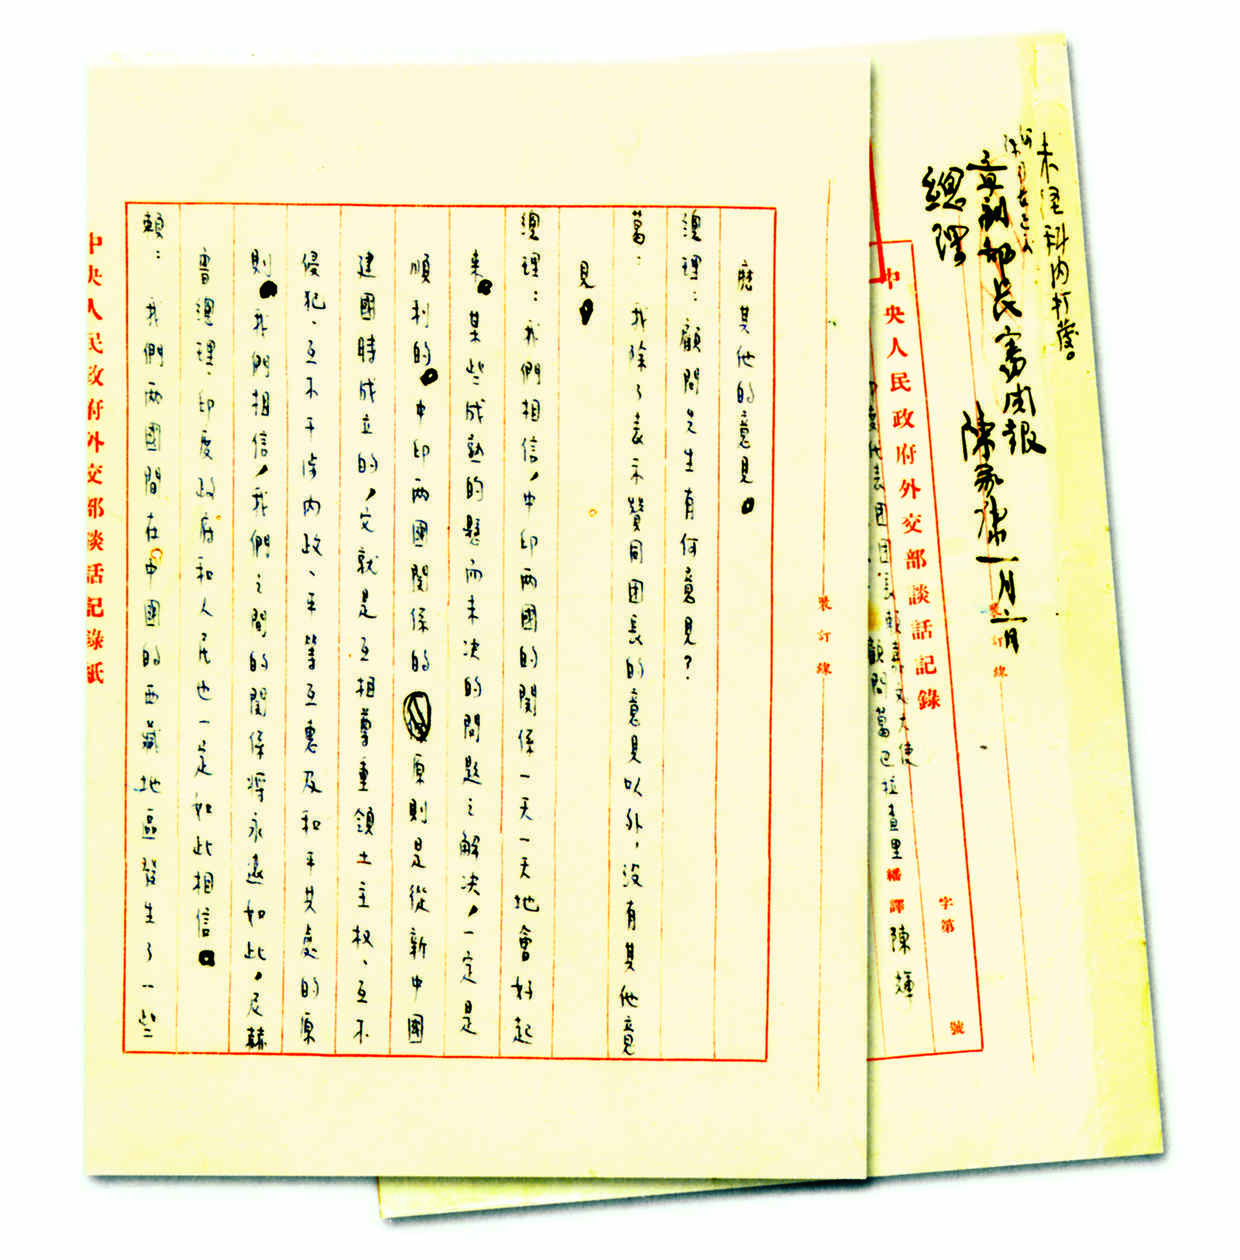 應其他的意見。
總理：顧問先生有何意見？
葛：我除了表示贊同團長的意見以外，沒有其他意
見。
總理：我們相信，中印兩國的関係一天一天地會好起
來。某些成熟的懸而未决的問題之解决，一定是
順利的。中印兩國関係的原則是從新中國
建國時成立的，它就是互相尊重領土主权、互不
侵犯、互不干涉内政、平等互惠及和平共處的原
則。我們相信，我們之間的関係將永遠如此，尼赫
魯總理、印度政府和人民也一定如此相信。
賴：我們兩國間在中國的西藏地區發生了一些
中央人民政府外交部談話記錄紙
裝訂線
總理
章副部長審閱報
未經科内打謄。
中央人民政府外交部談話記錄
字第 號
代表團團長 大使
顧問葛巴拉查里 繙譯 陳
裝訂線